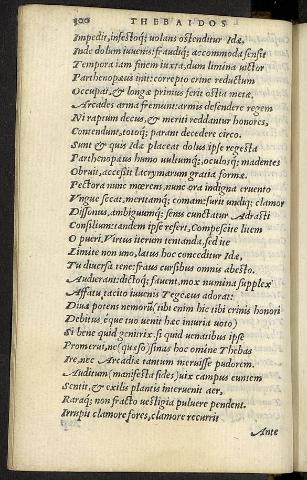 300 THEBAIDOS
Impedit, infestoq; uolans ostenditur Idæ,
Inde dolum iuuenis fraudiq; accommoda sensit
Tempora iam finem iuxta, dum limina uictor
Parthenopæus init: correpto crine reductum
Occupat, & longæ primus ferit ostia meta.
Arcades arma fremunt: armis defendere regem
Ni raptum decus, & meriti reddantur honores,
Contendunt, totoq; parant decedere circo.
Sunt & quis Idæ placeat dolus ipse regesta
Parthenopæus humo uultumq; oculosq; madentes
Obruit, accessit lacrymarum gratia formæ.
Pectora nunc mœrens, nunc ora indigna cruento
Vngue secat, meritamq; comam: furit undiq; clamor
Dissonus, ambiguumq; senis cunctatur Adrasti
Consilium: tandem ipse refert, Compescite litem
O pueri, Virtus iterum tentanda, sed ite
Limite non uno, latus hoc conceditur Idæ,
Tu diuersa tene: fraus cursibus omnis abesto.
Audierant: dictoq; fauent. mox numina supplex
Affatu tacito iuuenis Tegeæus adorat:
Diua potens nemorũ (tibi enim hic tibi crinis honori
Debitus, éque tuo uenit hæc iniuria uoto)
Si bene quid genitrix si quid uenatibus ipse
Promerui, ne (quæso) sinas hoc omine Thebas
Ire, nec Arcadiæ tantum meruisse pudorem.
Auditum (manifesta fides) uix campus euntem
Sentit, & exilis plantis interuenit aer,
Raraq; non fracto uestigia puluere pendent.
Irrupit clamore fores, clamore recurrit
Ante